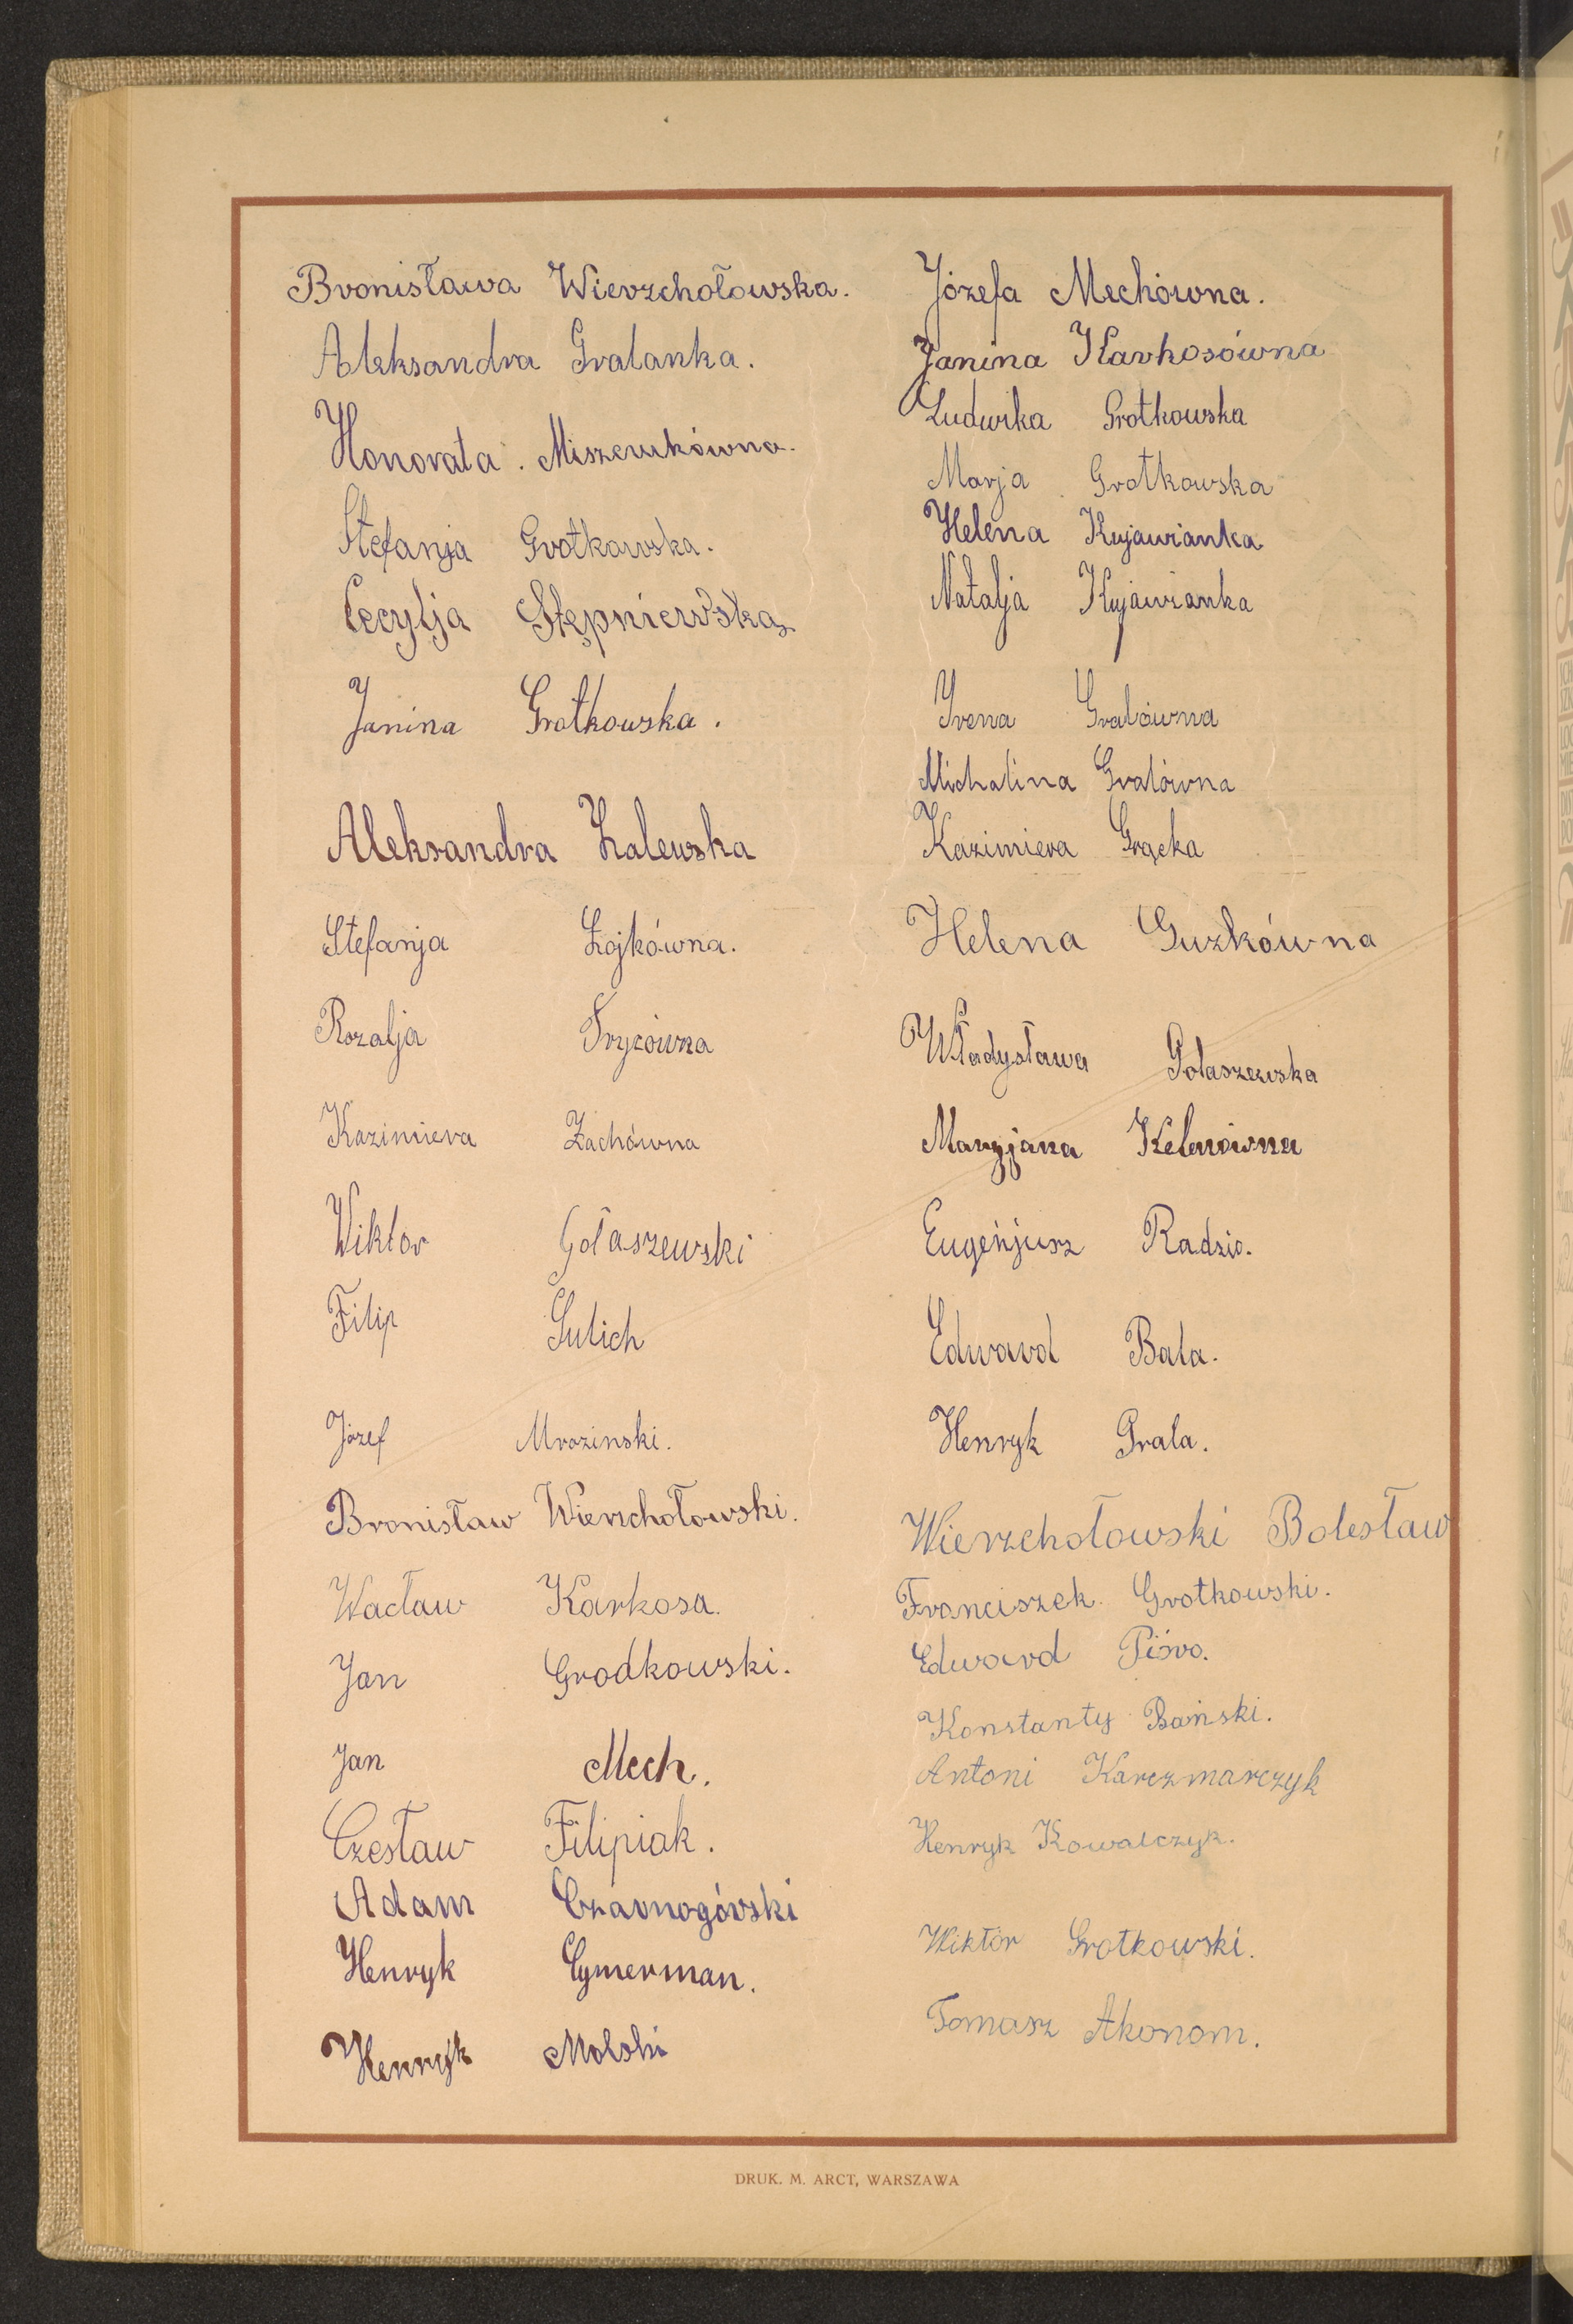 Bronisława Wierzchołowska.
Aleksandra Gralanka.
Honorata Miszewkówna.
Stefanja Grotkowska.
Cecylja Stępniewska
Janina Grotkowska.
Aleksandra Zalewska
Stefanja Łojkówna.
Rozalja Trycówna
Kazimiera Żachówna
Wiktor Gołaszewski
Filip Sulich
Józef Mrozinski.
Bronisław Wierzchołowski.
Wacław Karkosa.
Jan Grodkowski.
Jan Mech.
Czesław Filipiak.
Adam Czarnogórski
Henryk Cymerman.
Henryk Molski
Józefa Mechówna.
Janina Karkosówna
Ludwika Grotkowska
Marja Grotkowska
Helena Kujawianka
Natalja Kujawianka
Irena Gralówna
Michalina Gralówna
Kazimiera Grącka
Helena Guzkówna
Władysława Gołaszewska
Maryjana Kelerówna
Eugenjusz Radzio.
Edward Bala.
Henryk Grala.
Wierzchołowski Bolesław
Franciszek Grotkowski.
Edward Pióro.
Konstanty Bański.
Antoni Karczmarczyk
Henryk Kowalczyk.
Wiktór Grotkowski.
Tomasz Akonom.
DRUK. M. ARCT, WARSZAWA